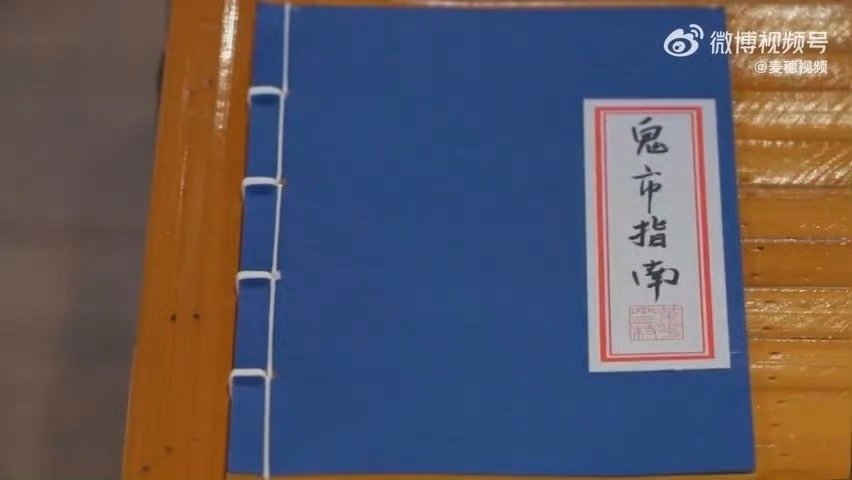 微博视频号
@麦穗视频
鬼市指南